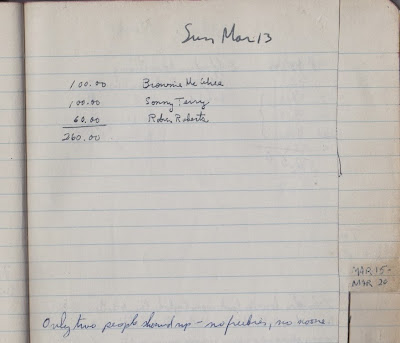 Sun Mar 13
100.00 Brownie McGhee
100.00 Sonny Terry
60.00 Robin Roberts
260.00
MAR 15 -
MAR 20
Only two people showed up - no freebies, no